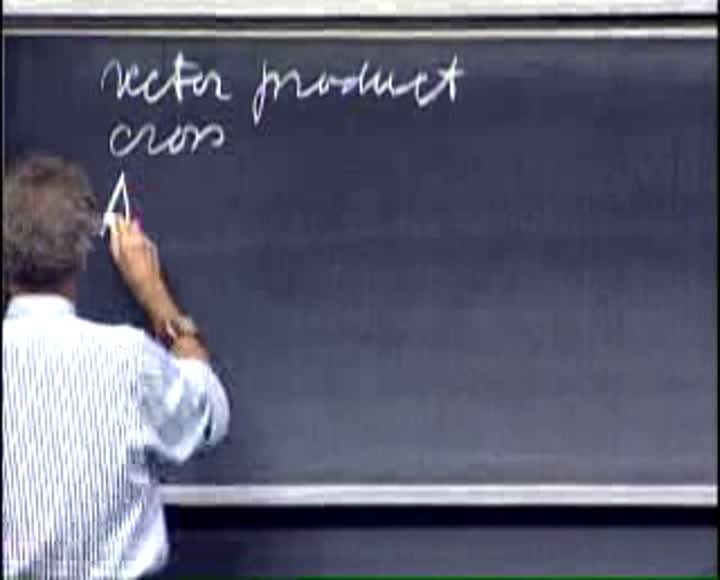 vector product
cross
A